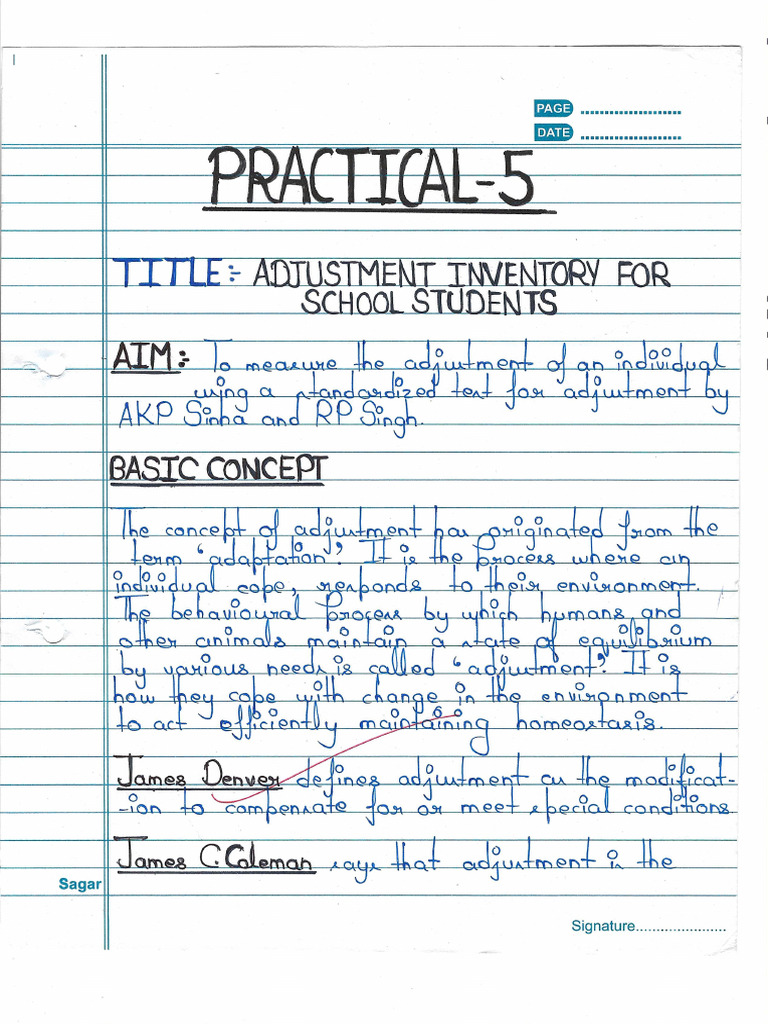 PAGE ......................
DATE ......................
PRACTICAL-5
TITLE:- ADJUSTMENT INVENTORY FOR
SCHOOL STUDENTS
AIM:- To measure the adjustment of an individual
using a standardized test for adjustment by
AKP Sinha and RP Singh.
BASIC CONCEPT
The concept of adjustment has originated from the
term 'adaptation'. It is the process where an
individual cope, responds to their environment.
The behavioural process by which humans and
other animals maintain a state of equilibrium
by various needs is called 'adjustment'. It is
how they cope with change in the environment
to act efficiently maintaining homeostasis.
James Denver defines adjustment as the modificat-
-ion to compensate for or meet special conditions
James C. Coleman says that adjustment is the
Sagar
Signature......................